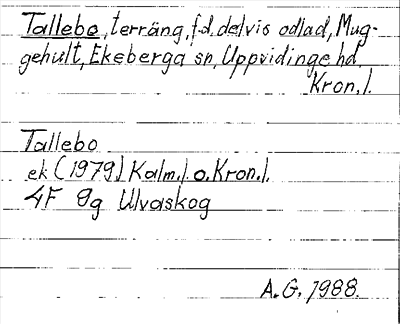 Tallebo, terräng, f.d. delvis odlad, Mug-
gehult, Ekeberga sn, Uppvidinge hd
Kron. l.
Tallebo
ek (1979) Kalm. l. o. Kron. l.
4F 9g Ulvaskog
A.G. 1988.